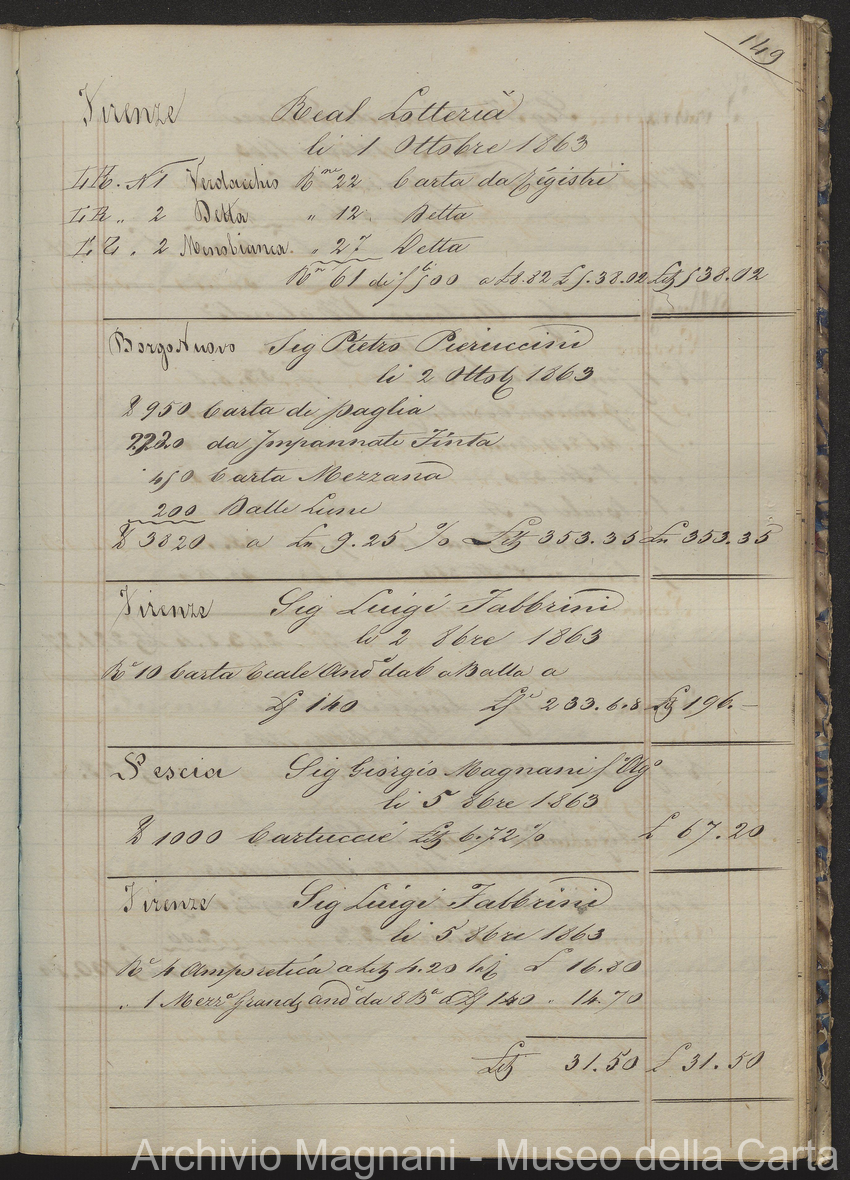 149
Firenze Real Lotteria
li 1 Ottobre 1863
L.R. N 1 Verdacchio Rme 22 Carta da Registri
L.R „ 2 Detta „ 12. Detta
L.R. „ 2 Menobianca. „ 27 Detta
Rm 61 di f 500 a £8.82 £ 538.02 538.02
Borgo Nuovo Sig Pietro Pieruccini
li 2 1863
950 Carta di paglia
2220 da Impannate Tinta
450 Carta Mezzana
200 Balle Lune
3820 a Ln 9.25 % 353.35 Ln 353.35
Firenze Sig Luigi Fabbrini
li 2 8bre 1863
Re 10 Carta Reale Anda da 6 a Balla a
140 233.6.8 196.—
Pescia Sig Giorgio Magnani f° Ag°
li 5 8bre 1863
1000 Cartuccie 6.72 % £ 67.20
Firenze Sig Luigi Fabbrini
li 5 8bre 1863
Re 4 Amporetica a 4.20 £ 16.80
„ 1 Mezza Grande anda da 8 Ba a 140 „ 14.70
31.50 £ 31.50
Archivio Magnani - Museo della Carta